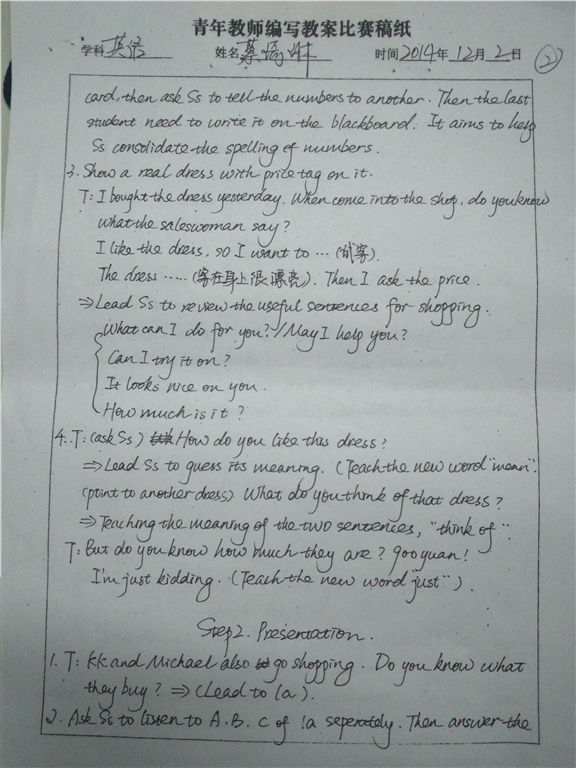 青年教师编写教案比赛稿纸
学科 英语 姓名 蔡 时间 2014年12月2日 ②
card, then ask Ss to tell the numbers to another. Then the last
student need to write it on the blackboard. It aims to help
Ss consolidate the spelling of numbers.
3. Show a real dress with price tag on it.
T: I bought the dress yesterday. When come into the shop, do you know
what the saleswoman say?
I like the dress, so I want to … (试穿).
The dress …… (穿在身上很漂亮). Then I ask the price.
⇒ Lead Ss to review the useful sentences for shopping.
What can I do for you? // May I help you?
Can I try it on?
It looks nice on you.
How much is it?
4. T: (ask Ss) How do you like this dress?
⇒ Lead Ss to guess its meaning. (Teach the new word "mean".
(ptint to another dress) What do you think of that dress?
⇒ Teaching the meaning of the two sentences, "think of".
T: But do you know how much they are? 900 yuan!
I'm just kidding. (Teach the new word "just").
Step 2. Presentation.
1. T: KK and Michael also go shopping. Do you know what
they buy? ⇒ (Lead to 1a).
2. Ask Ss to listen to A. B. C of 1a seperately. Then answer the